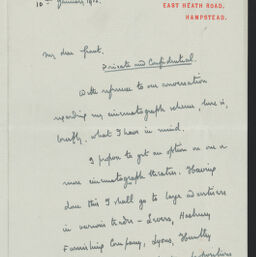 EAST HEATH ROAD,
HAMPSTEAD.
10th January 1912.
My dear Grant.
Private and Confidential.
With reference to our conversation
regarding my cinematograph scheme, here is,
briefly, what I have in mind.
I propose to get an option on one or
more cinematograph theatres. Having
done this I shall go to large advertisers
in various trades – Levers,
Furnishing Company, Lyons, Huntley